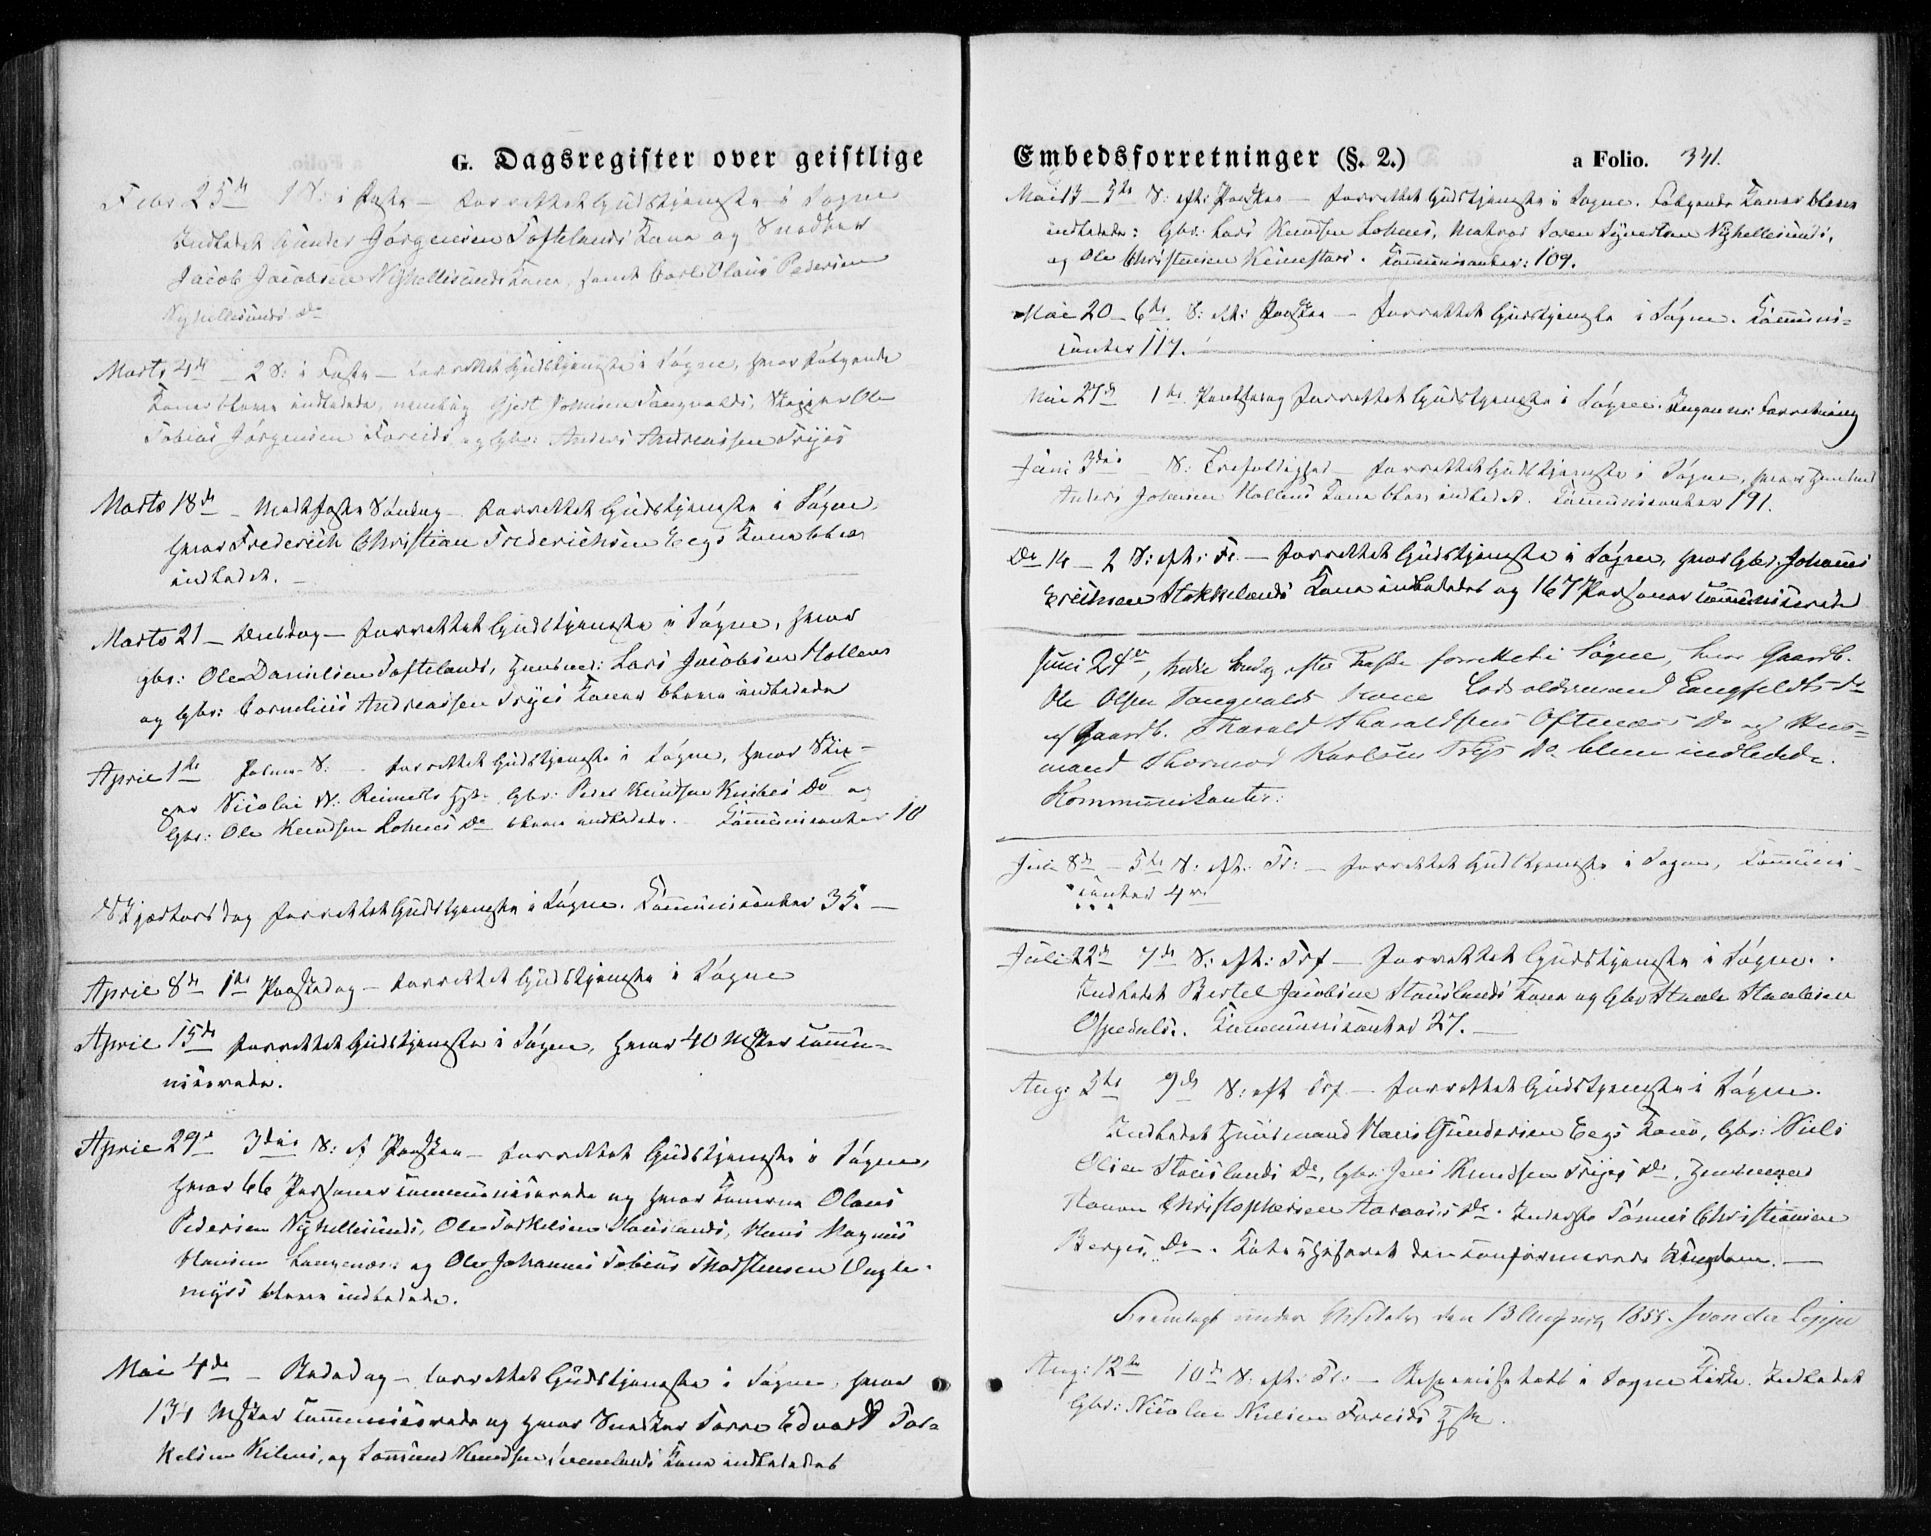 G. Dagsregister over geistlige
Febr 25de 1 S: i Faste — forrettet Gudstjeneste i Søgne
Indledet Gunder Jørgensen Toftelands Kone og Snedker
Jacob Jacobsen Nyhellesunds Kone, samt Carl Olaus Pedersen
Nyhellesunds Do
Marts 4de — 2 S: i Faste — forrettet Gudstjeneste i Søgne, hvor følgende
Koner bleve indledede, nemlig Gjert Johnsen Tangvalds, Skipper Ole
Tobias Jørgensen Foreids og Gbr: Anders Andreassen Tryes
Marts 18de — Midfaste Søndag — forrettet Gudstjeneste i Søgne,
hvor Frederich Christian Frederichsen Eegs Kone blev
indledet. —
Marts 21 — Onsdag — forrettet Gudstjeneste i Søgne, hvor
gbr: Ole Danielsen Toftelands, Huusmd: Lars Jacobsen Hollens
og Gbr: Cornelius Andreassen Tryes Koner bleve indledede
April 1te Palme S. — forrettet Gudstjeneste i Søgne, hvor Skip-
per Nicolai N: Reinerts Hst. Gbr: Peder Knudsen Knibes Do og
Gbr: Ole Knudsen Lohnes Do bleve indledede. Communicanter 10
Skjærtorsdag forrettet Gudstjeneste i Søgne. Communicanter 35. —
April 8de 1te Paaskedag — forrettet Gudstjeneste i Søgne
April 15de forrettet Gudstjeneste i Søgne, hvor 40 Msker commu-
nicerede.
April 29de 3die S: e: Paaske — forrettet Gudstjeneste i Søgne,
hvor 66 Personer communicerede og hvor Konerne Olaus
Pedersen Nyhellesunds, Ole Torkelsen Hauslands, Hans Magnus
Hansen Langenæs: og Ole Johannes Tobias Thorstensen
bleve indledede.
Mai 4de — Bededag — forrettet Gudstjeneste i Søgne, hvor
134 Msker communicerede og hvor Snedker Torre Edvard Tor-
kelsen Kilens, og Knudsen Kone indledet
Embedsforretninger (§. 2.) a Folio. 341.
Mai 13 — 5te S: eft: Paaske — forrettet Gudstjeneste i Søgne. Følgende Koner bleve
indledede: Gbr: Lars Knudsen Lohnes, Matros Søren Syvertsen Nyhellesunds,
og Ole Christensen Reinestads. Communicanter: 109.
Mai 20 — 6te S: eft: Paaske — forrettet Gudstjeneste i Søgne. Communi-
canter 117.
Mai 27de 1te Pintsedag forrettet Gudstjeneste i Søgne. Ingen Forretning
Juni 3die — S: Trefoldighed — forrettet Gudstjeneste i Søgne, hvor Huusmd
Anders Johnsen Hollens Kone blev indledet. Communicanter 191.
Do 14 — 2 S: eft: Tr. — forrettet Gudstjeneste i Søgne, hvor Gbr: Johannes
Erichsen Stokkelands Kone indlededes og 167 Personer communicerede
Juni 24de, Søndg efter Trefh forrettet i Søgne, hvor Gaardb.
Ole Olsen Tangvalds Kone Lods oldermand Langfeldts do
og Gaardb. Tharald Tharaldsens Oftenæs Do og Huus-
mand Thormod Karlsens Trys Do bleve indledede.
Kommunikanter:
Juli 8de — 5te S. eft. Tr: — forrettet Gudstjeneste i Søgne, Communi-
canter 4
Juli 22de 7de S. eft: Tref — forrettet Gudstjeneste i Søgne. .
Indledet Bertel Jacobsen Stauslands Kone og Gbr Staale Staalesen
Ospedals. Communicanter 27. —
Aug: 5te 9de S: eft Tref — forrettet Gudstjeneste i Søgne.
Indledet Huusmand Hans Gundersen Eegs Kone, Gbr: Niels
Olsen Stauslands Do, Gbr: Jens Knudsen Tryes Do, Huusmand
Christophersen Aaraas's Do. Inderst Tønnes Christiansen
Berges Do. Catechiseret den confirmerede Ungdom. —
Fremlagt under Visitats den 13 August 1855. J von der Lippe
Aug: 12te 10de S: eft: Tr: — Bispevisitats i Søgne Kirke. Indledet
Gbr: Nicolai Nielsen Foreids Hst.